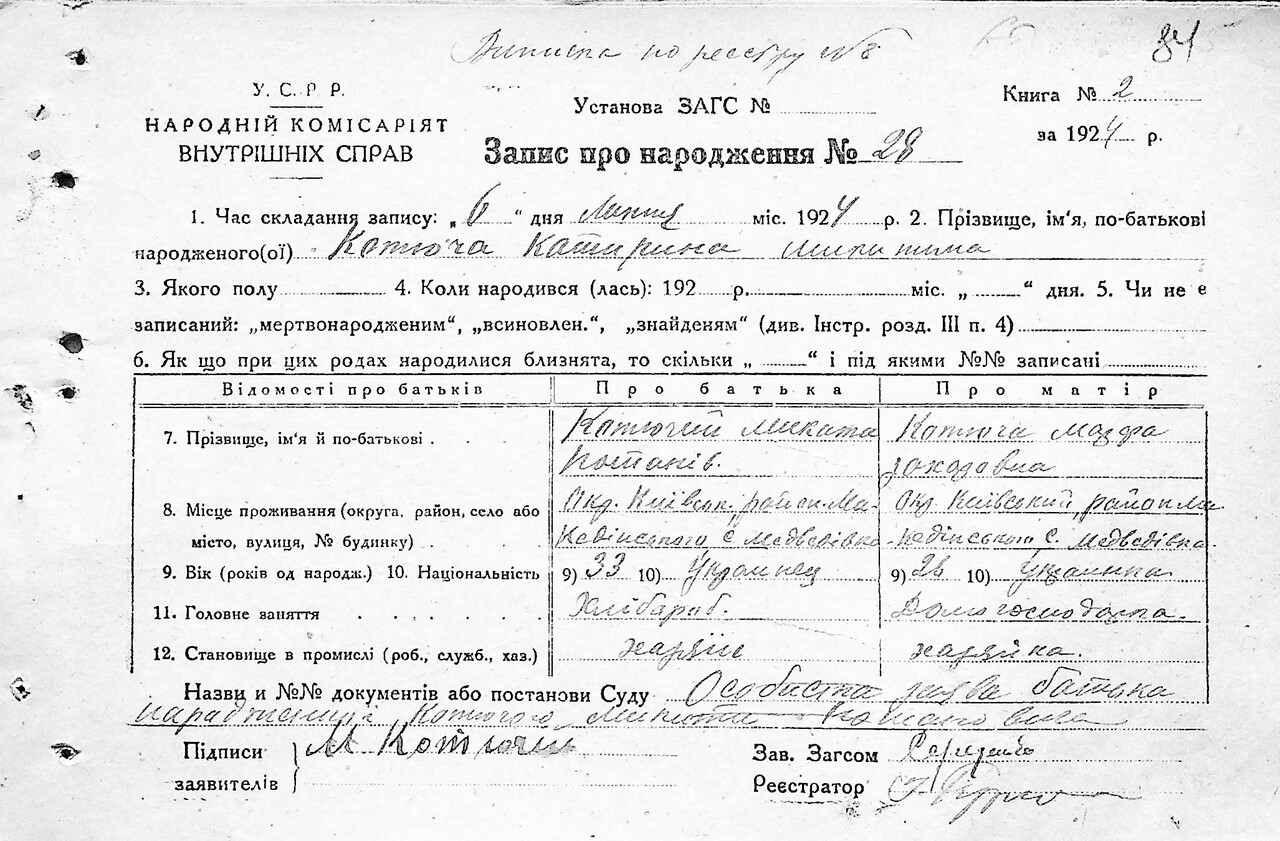 Виписка по реєстру № 8
84
У. С. Р. Р.
НАРОДНІЙ КОМІСАРІЯТ
ВНУТРІШНІХ СПРАВ
Установа ЗАГС №
Книга № 2
за 1924 р.
Запис про народження № 28
1. Час складання запису: „ 6 “ дня Липня міс. 1924 р. 2. Прізвище, ім'я, по-батькові
народженого(ої) Котюча Катирина Микитина
3. Якого полу 4. Коли народився (лась): 192 р. міс. „ “ дня. 5. Чи не є
записаний: „мертвонародженим“, „всиновлен.“, „знайденям“ (див. Інстр. розд. III п. 4)
6. Як що при цих родах народилися близнята, то скільки „ “ і під якими №№ записані
Відомості про батьків Про батька Про матір
7. Прізвище, ім'я й по-батькові . . . . Котючий Миката Котюча Мазфа
Потанів.
8. Місце проживання (округа, район, село або Окр. Київськ. район. Ма- Окр. Київський, район Ма
місто, вулиця, № будинку) . . . . кедінського с. Медведівка -кедінського с. Медведівка.
9. Вік (років од народж.) 10. Національність 9) 33 10) Украинец 9) 26 10) Украинка
11. Головне заняття . . . . . . Хлібароб. Домогосподарка.
12. Становище в промислі (роб., служб., хаз.) хазяїн хазяйка.
Назви и №№ документів або постанови Суду Особиста заява батька
Котючого Микити
Підписи М Котючий Зав. Загсом
заявителів Реєстратор